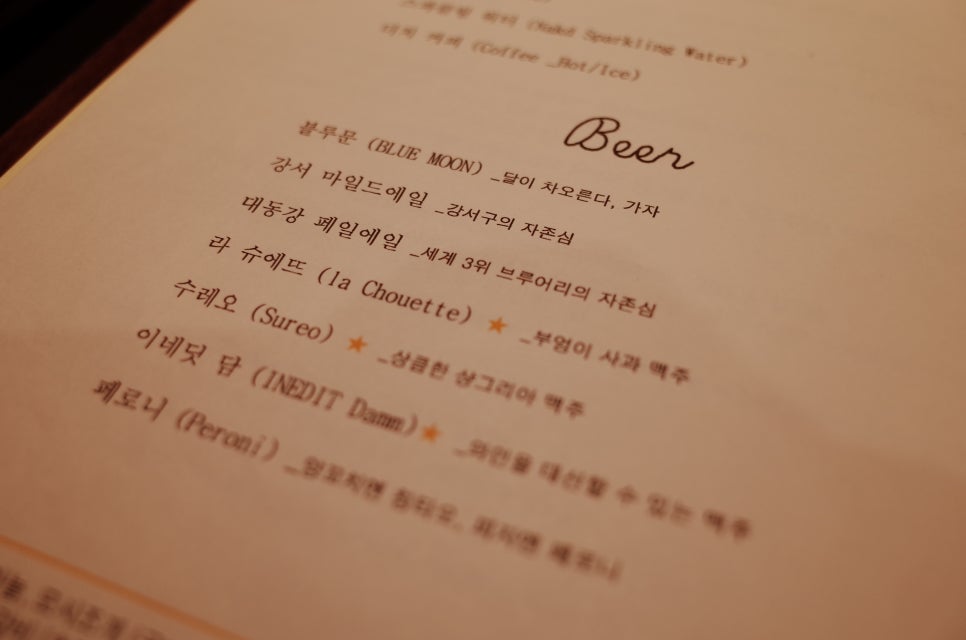 스파클링 워터 (Nakd Sparkling Water)
더치 커피 (Coffee _Hot/Ice)
Beer
블루문 (BLUE MOON) _달이 차오른다, 가자
강서 마일드에일 _강서구의 자존심
대동강 페일에일 _세계 3위 브루어리의 자존심
라 슈에뜨 (la Chouette) ★ _부엉이 사과 맥주
수레오 (Sureo) ★ _상큼한 샹그리아 맥주
이네딧 담 (INEDIT Damm) ★ _와인을 대신할 수 있는 맥주
페로니 (Peroni) _양꼬치엔 칭타오, 피자엔 페로니